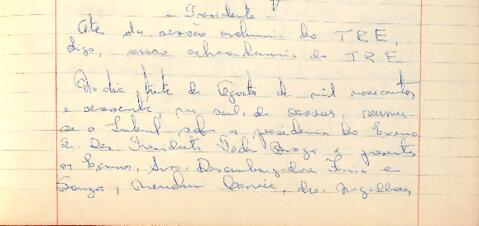 - Presidente -
Ata da sessão ordinaria do TRE,
digo, sessão extraordinaria do TRE
No dia trinta de Agosto de mil novecentos
e sessenta, na sala de sessões, reuniu-
se o Tribunal sob a presidencia do Exmo
Sr. Des. Presidente Pedro Braga e presentes
os Exmos. Srs. Desembargadores Faria e
Souza, Mendes